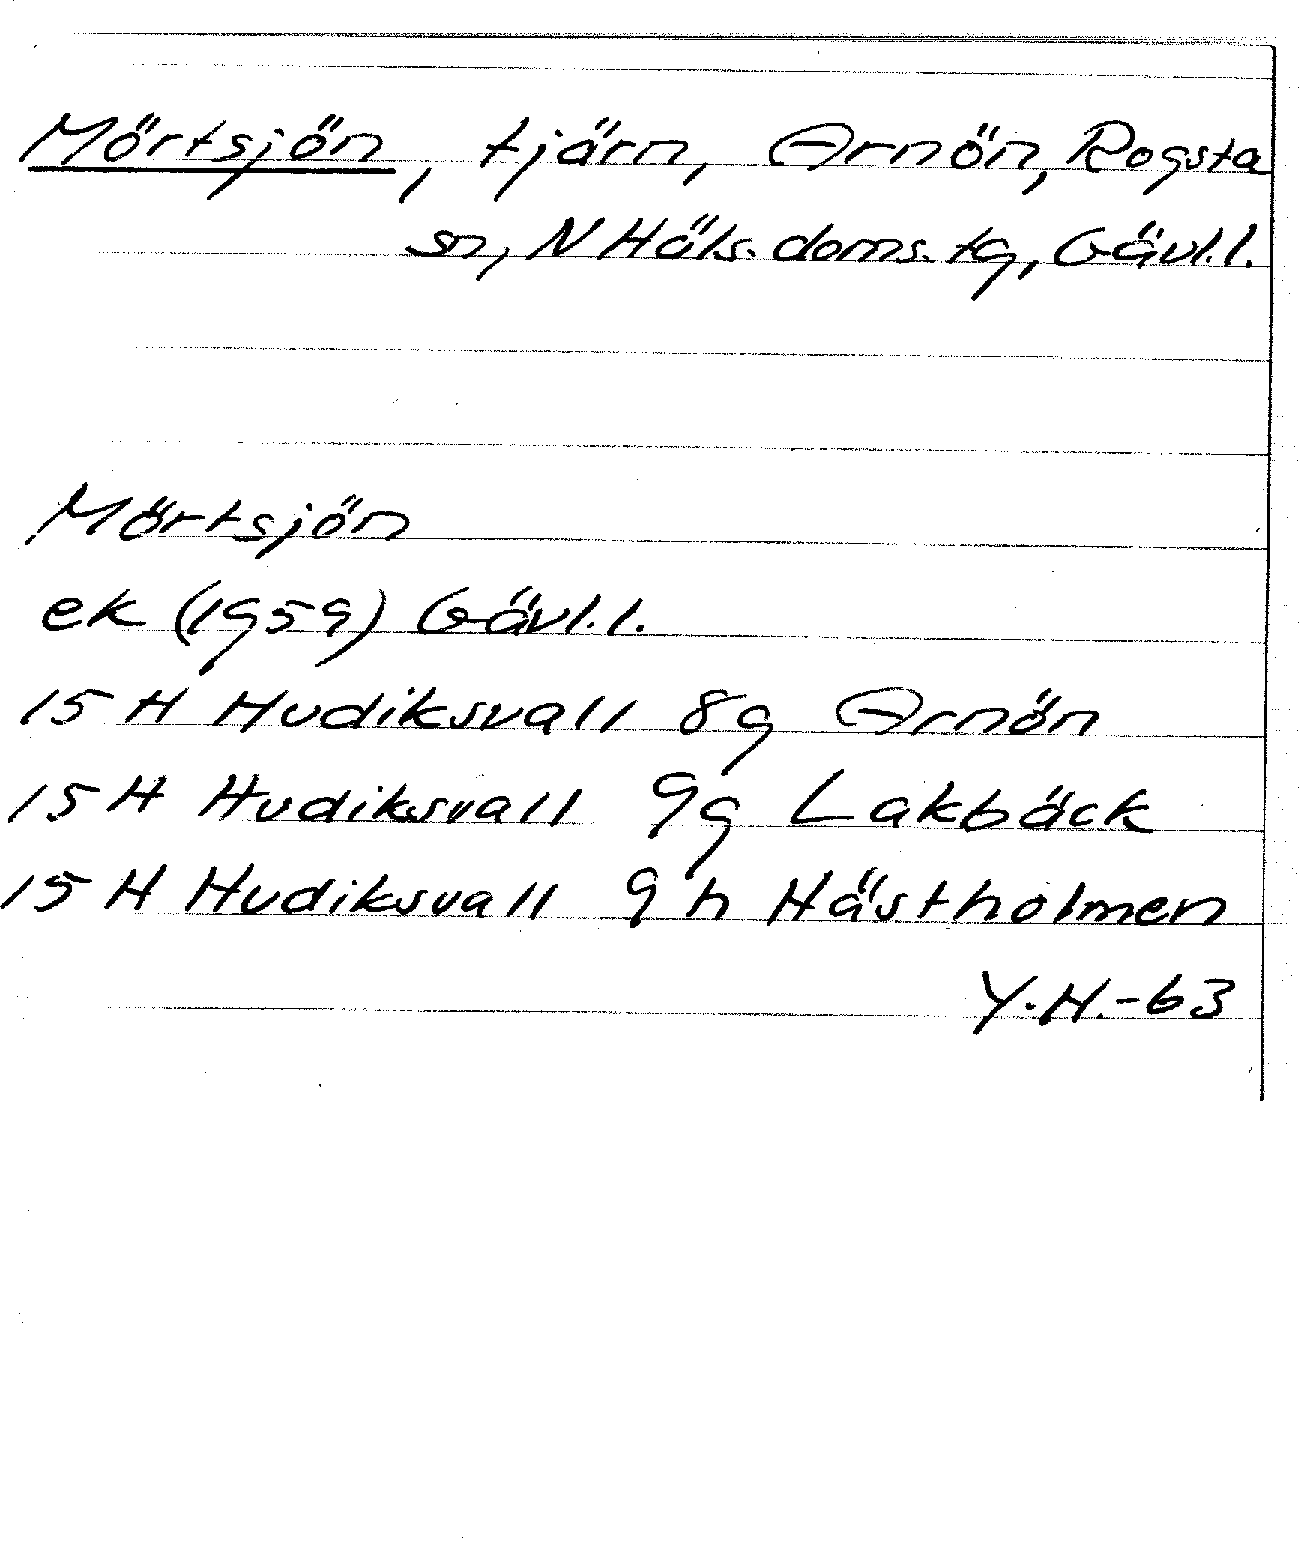 Mörtsjön, tjärn, Arnön, Rogsta
sn, N Häls. doms. tg, Gävl. l.
Mörtsjön
ek (1959) Gävl. l.
15 H Hudiksvall 8g Arnön
15 H Hudiksvall 9g Lakbäck
15 H Hudiksvall 9h Hästholmen
Y.H.-63